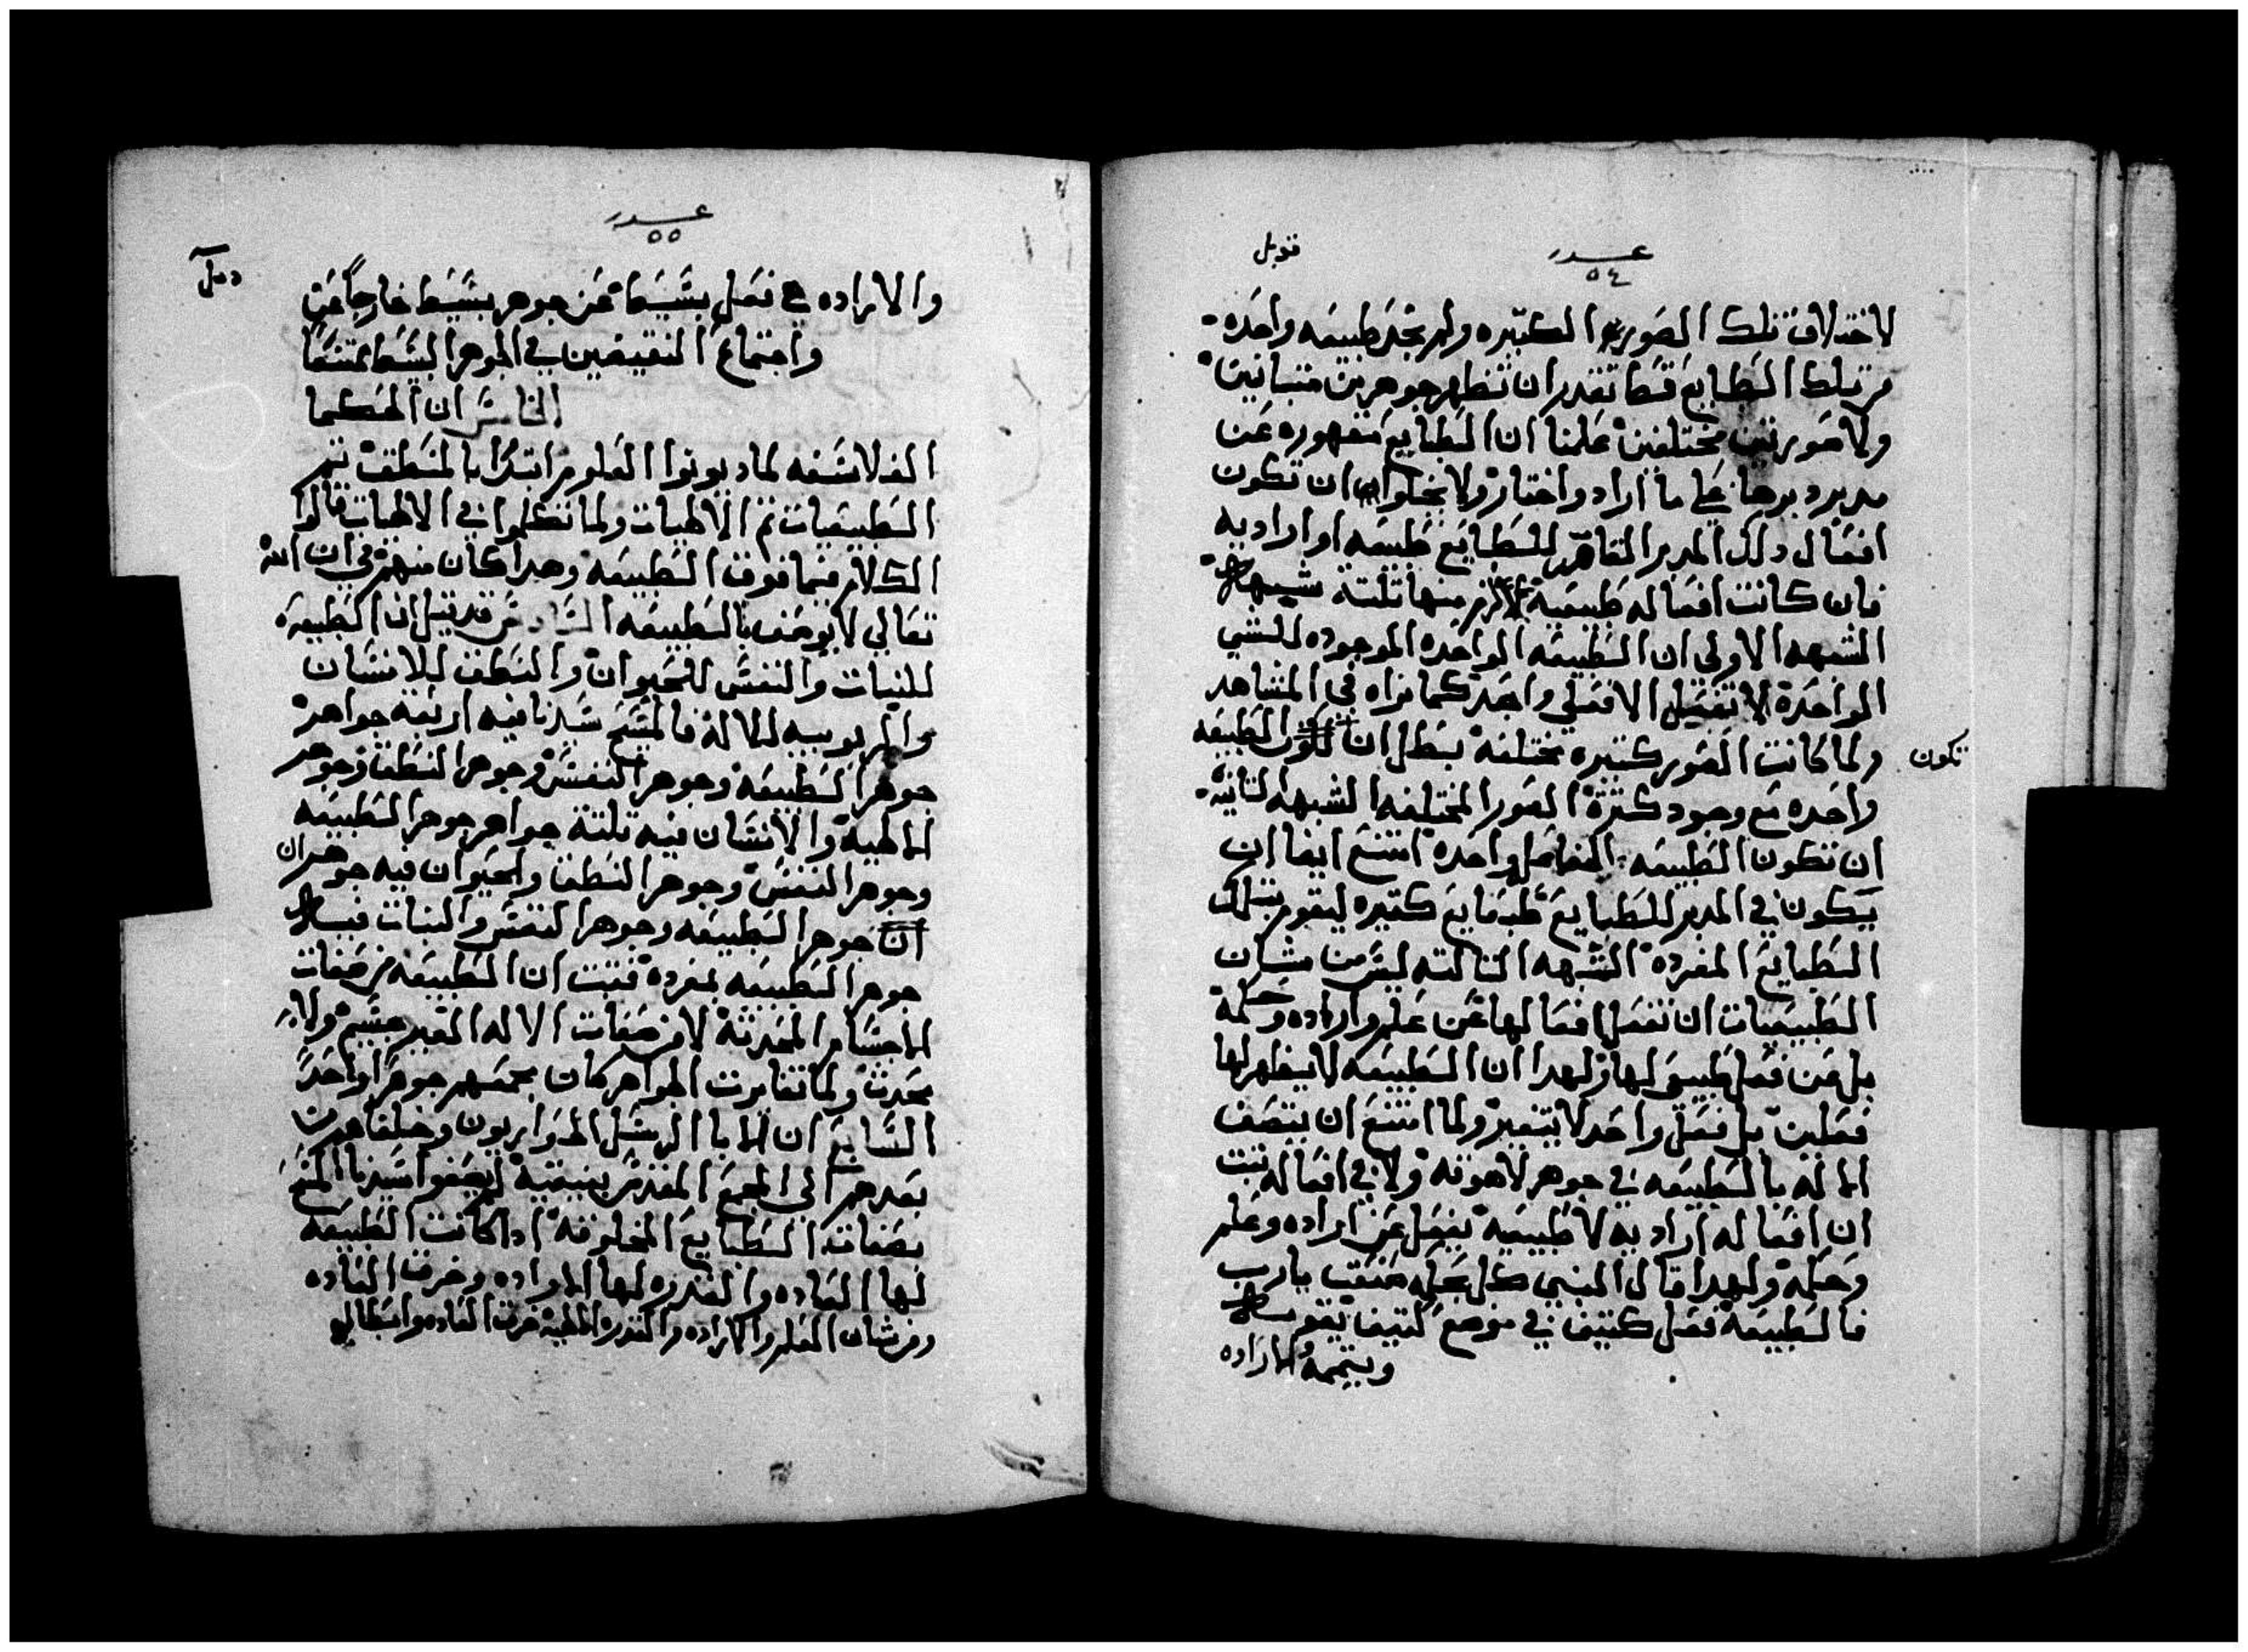 قوبل
عدد
٥٤
لاختلاف تلك الصور الكثيره ولم نجد طبيعه واحده
من تلك الطبايع قط تقدر ان تظهر جوهرين متباينين
ولا صورتين مختلفين علمنا ان الطبايع مقهوره عن
مدبر دبرها على ما اراد واختار ولا يخلوا ان تكون
افعال دلك المدبر القاهر للطبايع طبيعيه او اراديه
فان كانت افعاله طبيعيه لازم منها ثلثة شبهات
الشبهه الاولي ان الطبيعه الواحده الموجوده للشي
الواحده لا تفعل الا فعل واحد كما نراه في المشاهد
ولما كانت الصور كثيره مختلفه بطل ان تكون الطبيعه
تكون
واحده مع وجود كثرة الصور المختلفه الشبهه الثانيه
ان تكون الطبيعه الفاعل واحده امتنع ايضا ان
يكون في المدبر للطبايع طبايع كثيره ليقوم بتلك
الطبايع المفرده الشبهه الثالثه ليس من شان
الطبيعيات ان تفعل افعالها عن علم واراده وحكمة
بل عن فعل طبيعي لها ولهدا ان الطبيعه لا يظهر لها
فعلين بل فعل واحد لا يتغير ولما امتنع ان يتصف
الاله بالطبيعه في جوهر لاهوته ولا في افعاله ثبت
ان افعاله اراديه لا طبيعيه بفعل عن اراده وعلم
وحكمه ولهدا قال النبي كل بحكمه صنعت يارب
فالطبيعه فعل كثيف في موضع كثيف يقوم
ويتممه الاراده
عدد
٥٥
والاراده فعل بسيط عن جوهر بسيط خارجاً عن
واجتماع النقيضين في الجوهر البسيط ممتنعا
ان الحكما
الفلاسفه لما دونوا العلوم ابتدا بالمنطق ثم
الطبيعيات ثم الالهيات ولما تكلموا في الالهيات قالوا
الكلام فيما فوق الطبيعه وهدا كان منهم في ان الله
تعالي لا يوصف بالطبيعه قد قيل ان الطبيعه
للنبات والنفس للحيوان والنطق للانسان
والربوبيه للاله فالمسيح سيدنا فيه اربعة جواهر
جوهر الطبيعه وجوهر النفس وجوهر النطق وجوهر
الالهية والانسان فيه ثلثة جواهر جوهر الطبيعه
وجوهر النفس وجوهر النطق والحيوان فيه جوهران
ان جوهر الطبيعه وجوهر النفس والنبات فيه
جوهر الطبيعه بمفرده فثبت ان الطبيعه من صفات
الاجسام المحدثة لا من صفات الاله الغير جسم ولا
محدث ولما تغايرت الجواهر كان بجمعهم جوهرا واحدً
السابع ان الابا الرسل الحواريون وخلفاهم من
بعدهم الى المجمع المقدس بنيقيه لم يصفوا سيدنا المسيح
بصفات الطبايع المخلوقه ادا كانت الطبيعه
لها العاده والقدره لها الاراده وخرق العاده
ومن شان العلم والاراده والقدره الالهيه خرق العاده وابطال